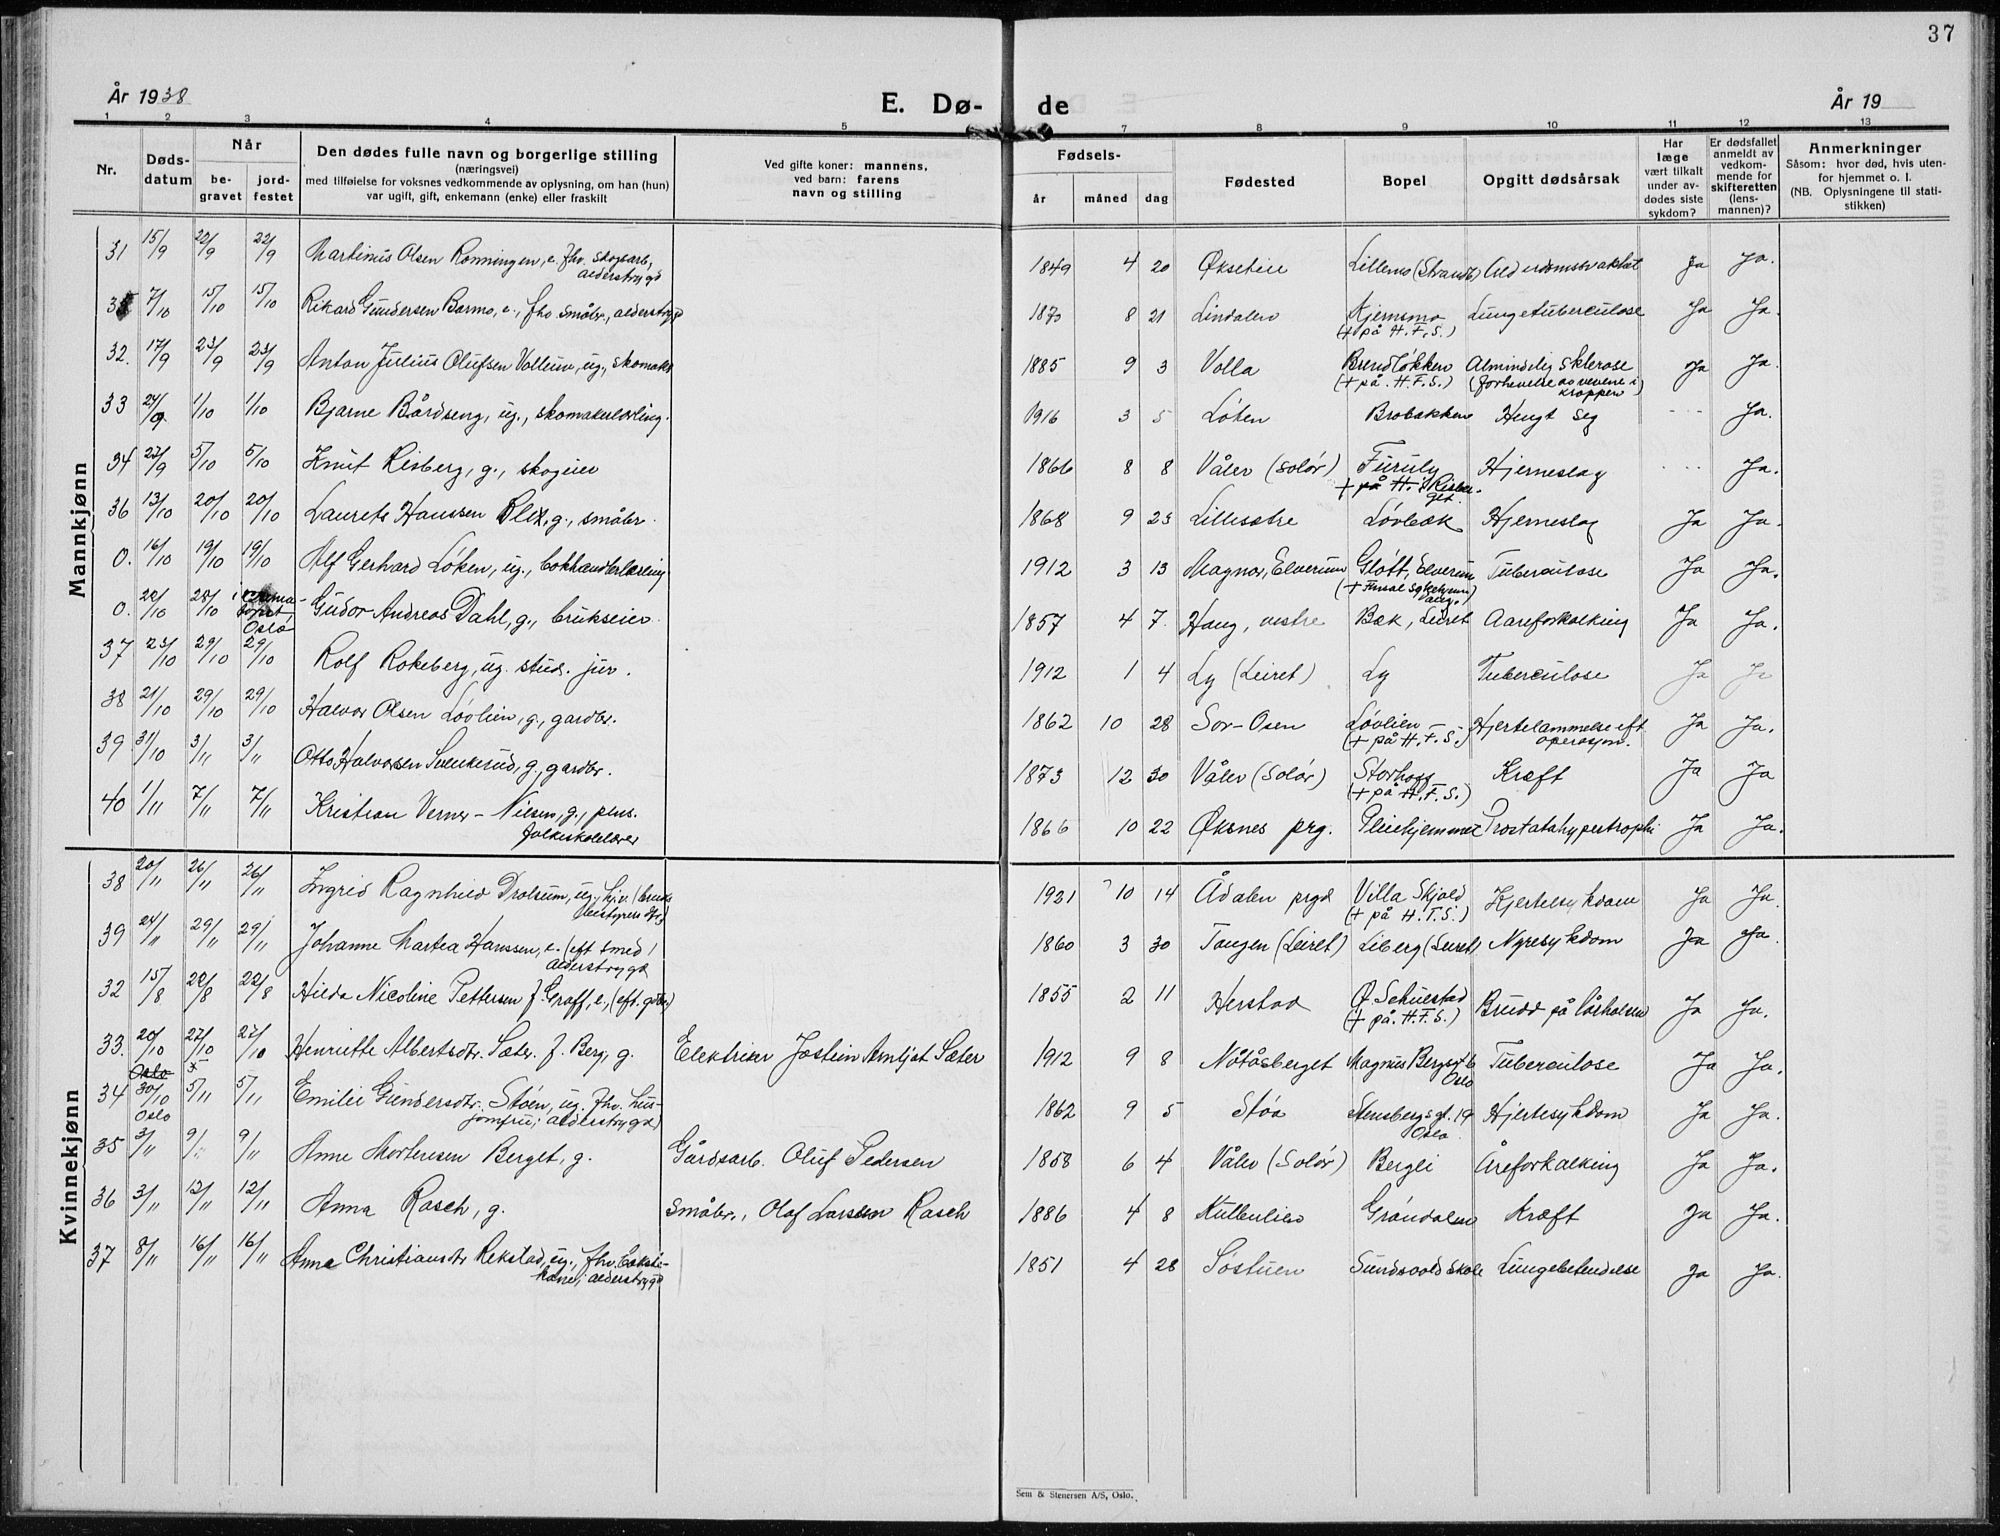 37
År 1938
E. Dø- de
År 19
1 2 3 4 5 7 8 9 10 11 12 13
Nr.
Døds-
datum
Når
be-
gravet
jord-
festet
Den dødes fulle navn og borgerlige stilling
(næringsvei)
med tilføielse for voksnes vedkommende av oplysning, om han (hun)
var ugift, gift, enkemann (enke) eller fraskilt
Ved gifte koner: mannens,
ved barn: farens
navn og stilling
Fødsels-
år måned dag
Fødested
Bopel
Opgitt dødsårsak
Har
læge
vært tilkalt
under av-
dødes siste
sykdom?
Er dødsfallet
anmeldt av
vedkom-
mende for
skifteretten
(lens-
mannen)?
Anmerkninger
Såsom: hvor død, hvis uten-
for hjemmet o. l.
(NB. Oplysningene til stati-
stikken)
Mannkjønn
31 15/9 22/9 22/9 Martinus Olsen Rønningen, e. fhv. skogsarb., 1849 4 20 Øksetiee Lillemo (Strandb.) Alderdomssvakhet Ja Ja.
alderstrygd
35 7/10 15/10 15/10 Rikard Gundersen Barmo, e., fhv. småbr., alderstrygd 1870 8 21 Lindalen Kjernsmo Lungetuberculose Ja Ja.
(+ på H.F.S.)
32. 17/9 23/9 23/9 Anton Julius Olufsen Vollum, ug., skomaker 1885 9 3 Volla Brendløkken Almindelig sklerose Ja Ja.
(+ på. H.F.S.) (forhevelse av vevene i
kroppen)
33 24/9 1/10 1/10 Bjarne Bårdseng, ug., skomakerlærling. 1916 3 5 Løten Brobakken Hengt seg --- Ja.
34 27/9 5/10 5/10 Knut Risberg, g., skogeier 1866 8 8 Våler (Solør) Furuly Hjerneslag ... Ja.
+ på H. Risber-
get.
36 13/10 20/10 20/10 Laurits Hanssen Blix, g., småbr. 1868 9 23 Lillesætre Løvbæk Hjerneslag Ja Ja.
0. 16/10 19/10 19/10 Alf Gerhard Løken, ug., bokhandlerlærling 1912 3 13 Magnor, Elverum Gløtt, Elverum Tuberculose Ja Ja.
(+ Finsal sykehjem)
0. 22/10 28/10 i krema- Gudor Andreas Dahl, g., brukseier. 1857 4 7. Haug, vestre Bæk, Leiret Aareforkalking Ja Ja.
toriet
Oslo
37 23/10 29/10 29/10 Rolf Rokeberg, ug. stud. jur. 1912 1 4 Ly (Leiret) Ly Tuberculose Ja Ja
38 21/10 29/10 29/10 Halvor Olsen Løvlien, g., gardbr. 1862 10 28 Sør-Osen Løvlien Hjertelammelse eft. Ja Ja.
(+ på H.F.S.) operasjon.
39 31/10 3/11 3/11 Otto Halvorsen Svenkerud, g., gardbr. 1873 12 30 Våler (Solør) Storhagg Kræft Ja Ja
(+ på H.F.S.)
40 1/11 7/11 7/11 Kristian Verner-Nilsen, g., pens. 1866 10 22 Øksnes prg. Pleiehjemmet Prostatahypertrophi Ja Ja.
folkeskolelærer
Kvinnekjønn
38 20/11 26/11 26/11 Ingrid Ragnhild Drolsum, ug., hj.v. (bruks- 1921 10 14 Ådalen prgd Villa Skjold Hjertesykdom Ja Ja.
bestyrers dtr.) (+ på H.F.S.)
39 24/11 29/11 29/11 Johanne Martea Hanssen, e. (eft. smed) 1860 3 30 Tangen (Leiret) Liberg (Leiret) Nyresykdom Ja Ja.
alderstrygd
32 15/8 22/8 22/8 Hilda Nicoline Pettersen f. Graff, e., (eft. gdbr.) 1855 2 11 Herstad Ø. Schulstad Brudd på lårhalsen Ja Ja.
(+ på. H.F.S.)
33. 20/10 27/10 27/10 Henriette Albertsdtr. Sæter f. Berg, g. Elektriker Jostein Arnljot Sæter 1912 9 8 Nøtåsberget Magnus Bergsgt. 6 Tuberculose Ja Ja.
Oslo Oslo
34 30/10 5/11 5/11 Emilie Gundersdtr. Støen, ug. fhv. hus- 1862 9 5 Støa Stensbergsgt. 19 Hjertesykdom Ja Ja.
Oslo jomfru; alderstrygd) Oslo
35 3/11 9/11 9/11 Anne Mortensen Berget, g. Gårdsarb. Oluf Pedersen 1858 6 4 Våler (Solør) Bergli Åreforkalking Ja Ja.
36 3/11 12/11 12/11 Anna Rasch, g. Småbr., Olaf Larsen Rasch 1886 4 8 Kulbulien Grøndalen Kræft Ja Ja.
37 8/11 16/11 16/11 Anne Christiansdtr. Rekstad, ug., fhv. bakste- 1851 4 28 Søstuen Sundvold skole Lungebetendelse Ja Ja.
kone; alderstrygd
Sem & Stenersen A/S, Oslo.